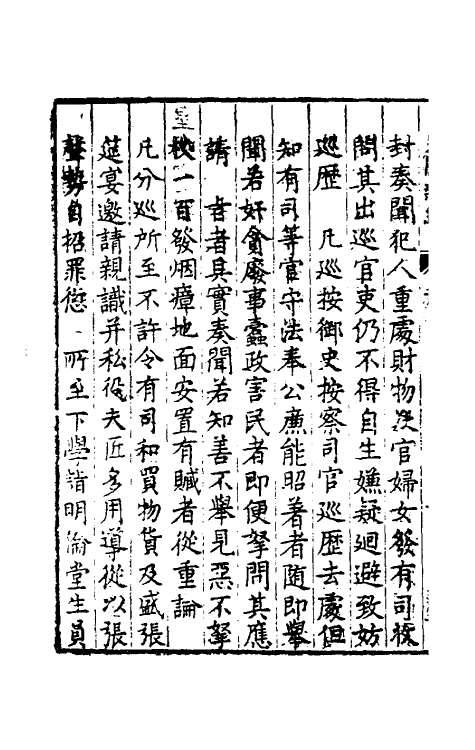 封奏聞犯人重處財物沒官婦女發有司採
問其出巡官吏仍不得自生嫌疑廻避致妨
巡歷　凡巡按御史按察司官巡歷去處但
知有司等官守法奉公廉能昭著者随即舉
聞若奸貪廢事蠹政害民者即便拏問其應
請　旨者具實奏聞若知善不舉見惡不拏
杖一百發烟瘴地面安置有贓者從重論
凡分巡所至不許令有司和買物貨及盛張
筵宴邀請親識并私役夫匠多用導從以張
聲勢自招罪愆　所至下學詣明倫堂生員